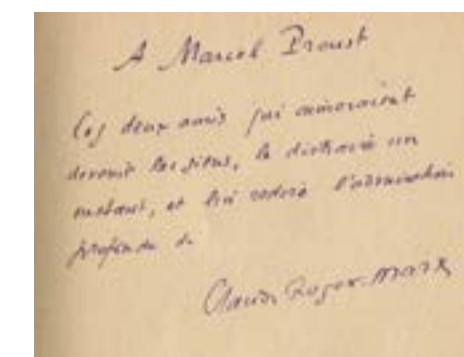 A Marcel Proust
Ces deux amis qui aimeraient
devenir les siens, le distraire un
instant, et lui redire l'admiration
profonde de
Claude Roger-Marx